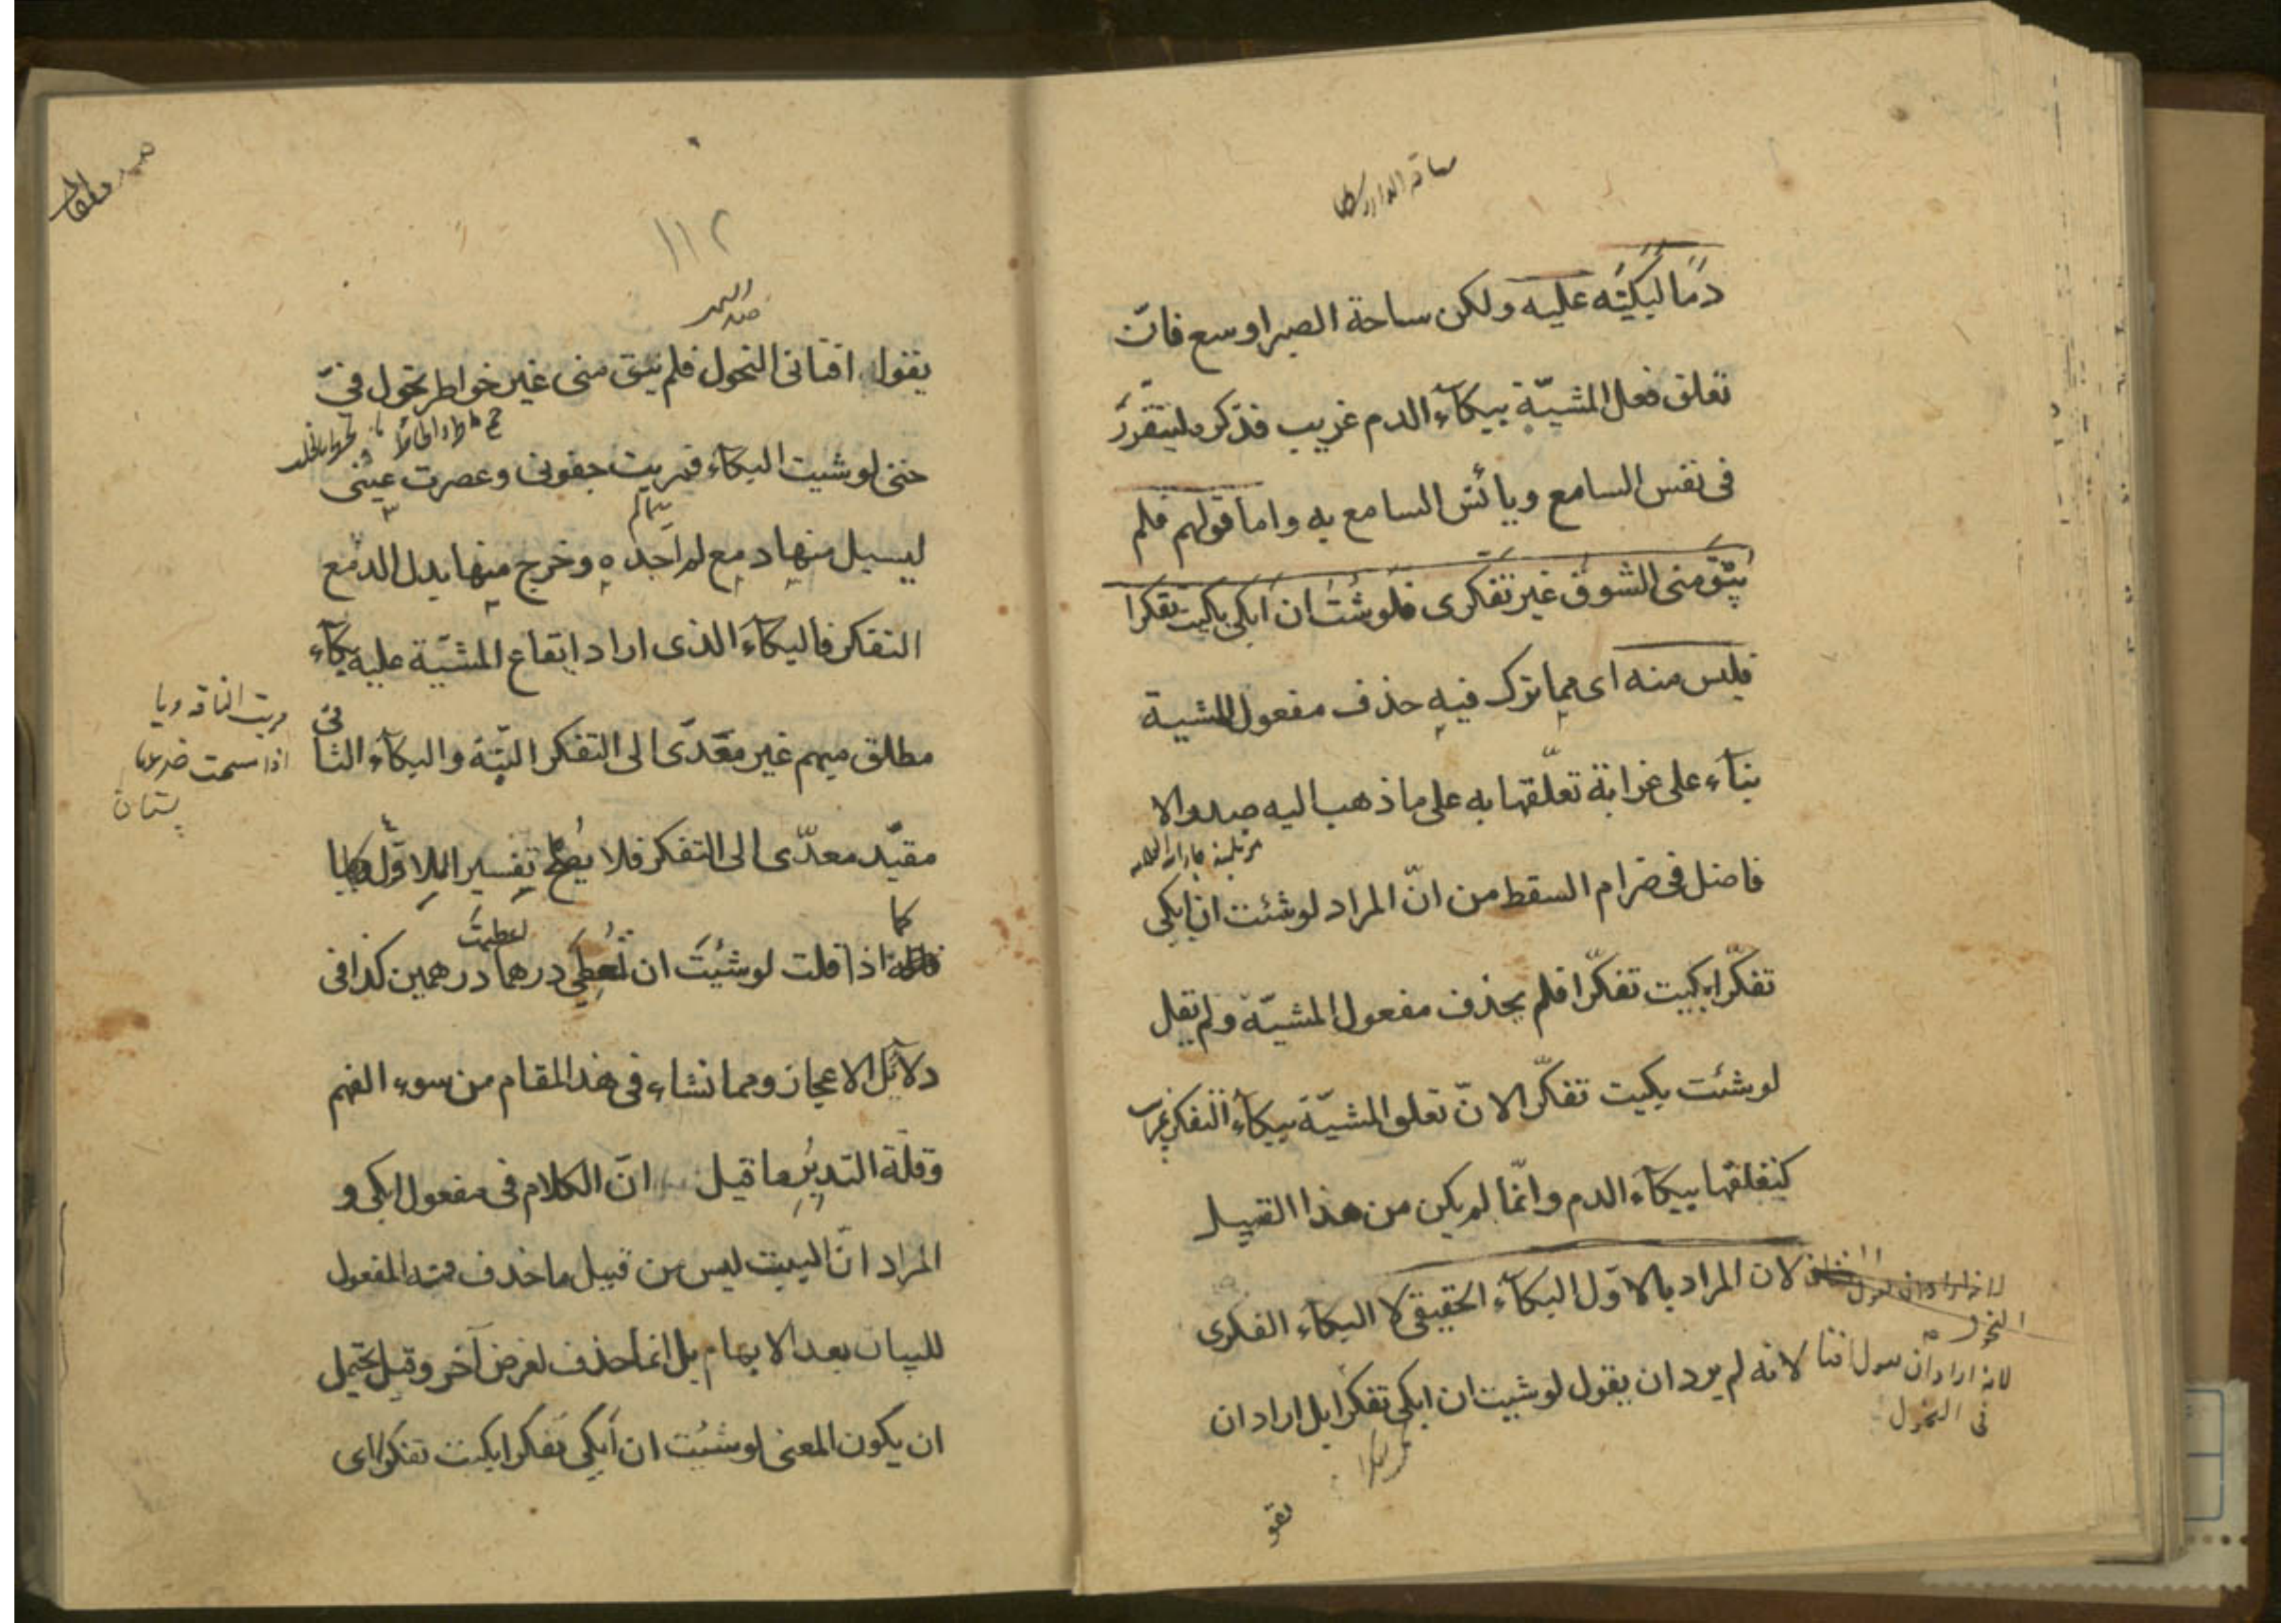 دمًا لبكيته عليه ولكن ساحة الصبر اوسع فانّ
تعلق فعل المشيّة ببكآء الدم غريب فذكره ليتقرّر
فى نفس السامع ويأنس السامع به واما قولهم فلم
يبق منى الشوق غير تفكرى فلو شئت ان ابكى بكيت تفكرا
فليس منه اى مما ترك فيه حذف مفعول المشية
بنآء على غرابة تعلّقها به على ما ذهب اليه صدر الا
فاضل فى ضرام السقط من انّ المراد لو شئت ان ابكى
تفكّرا بكيت تفكّرا فلم يحذف مفعول المشيّة ولم يقل
لو شئت بكيت تفكّرا لانّ تعلق المشيّة ببكآء التفكر غريب
كتعلقها ببكآء الدم وانّما لم يكن من هذا القبيل
لان المراد بالاوّل البكآء الحقيقى لا البكآء الفكرى
لانه لم يرد ان يقول لو شيت ان ابكى تفكرا بل اراد ان
لانه اراد ان يقول افنا
نى النحول
يقو
١١٢
يقول افنانى النحول فلم يبق منى غير خواطر تجول فىّ
حتى لو شيت البكآء فمريت جفونى وعصرت عينى
ليسيل منها دمع لم اجده وخرج منها بدل الدمع
التفكر فالبكآء الذى اراد ايقاع المشيّة عليه بكآء
مطلق مبهم غير معدّى الى التفكر البتّة والبكآء الثانى
مريت الناقة
اذا مسحت ضرعها
پستان
مقيّد معدّى الى التفكر فلا يصلح تفسيرا للاوّل وبيانا
كما
اذا قلت لو شيت ان تعطى درهما اعطيت درهمين كذا فى
دلائل الاعجاز ومما نشاء فى هذا المقام من سوء الفهم
وقلّة التدبر ما قيل انّ الكلام فى مفعول ابكى و
المراد انّ البيت ليس من قبيل ما حذف منه المفعول
للبيان بعد الابهام بل انما حذف لغرض آخر وقيل يحتمل
ان يكون المعنى لو شئت ان ابكى تفكرا بكيت تفكرا اى